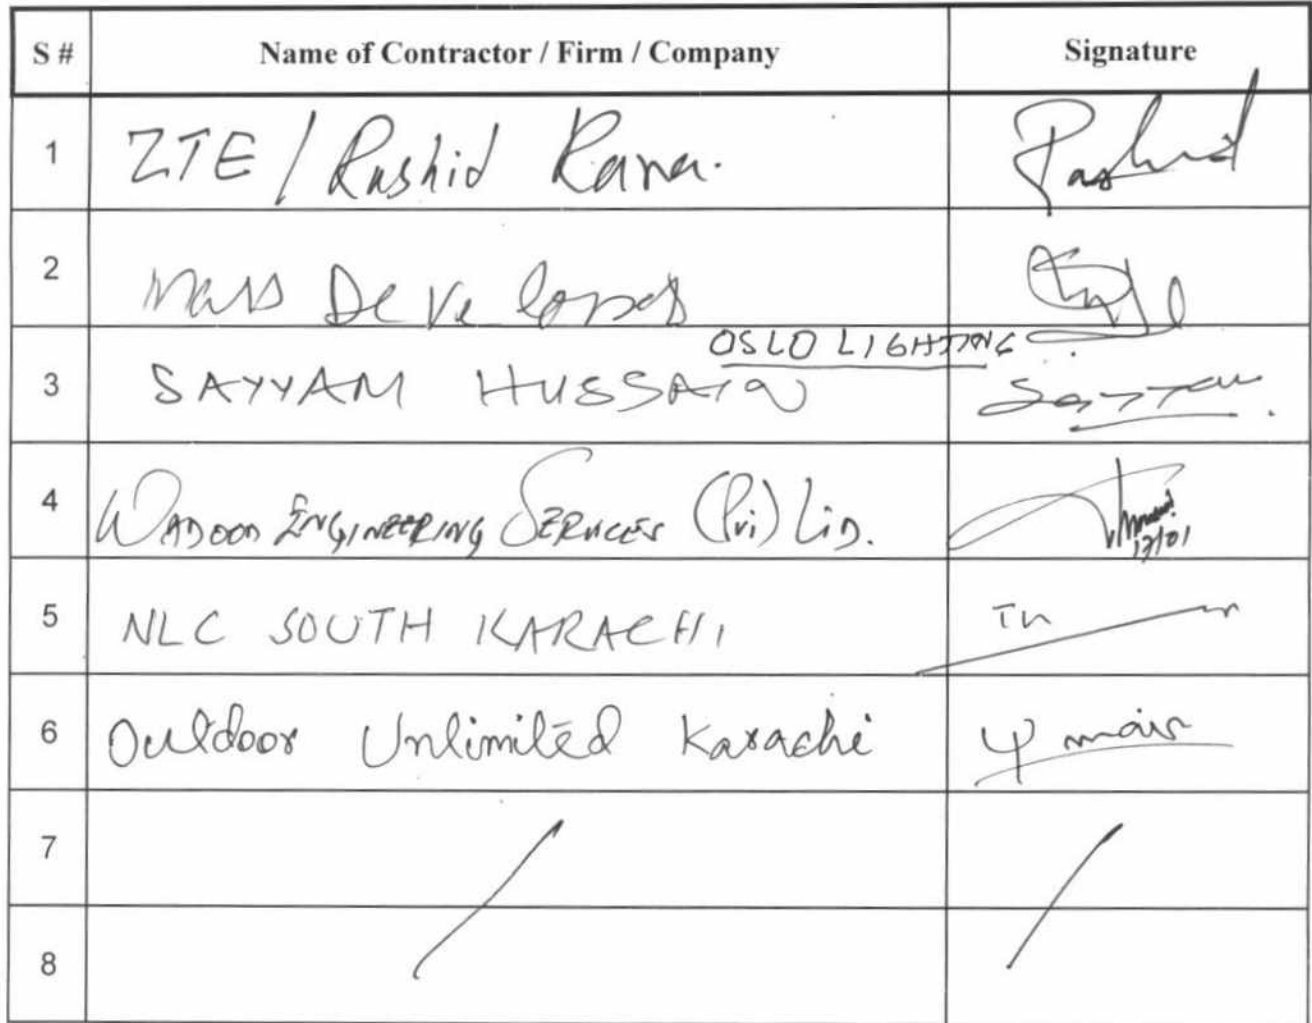 S # Name of Contractor / Firm / Company Signature
1 ZTE / Rashid Rana. Rashid
2 Mass Developers
OSLO LIGHTING
3 SAYYAM HUSSAIN Sayyam
4 WADOOD ENGINEERING SERVICES (Pvi) LTD. 17/01
5 NLC SOUTH KARACHI
6 Outdoor Unlimited Karachi Umair
7
8